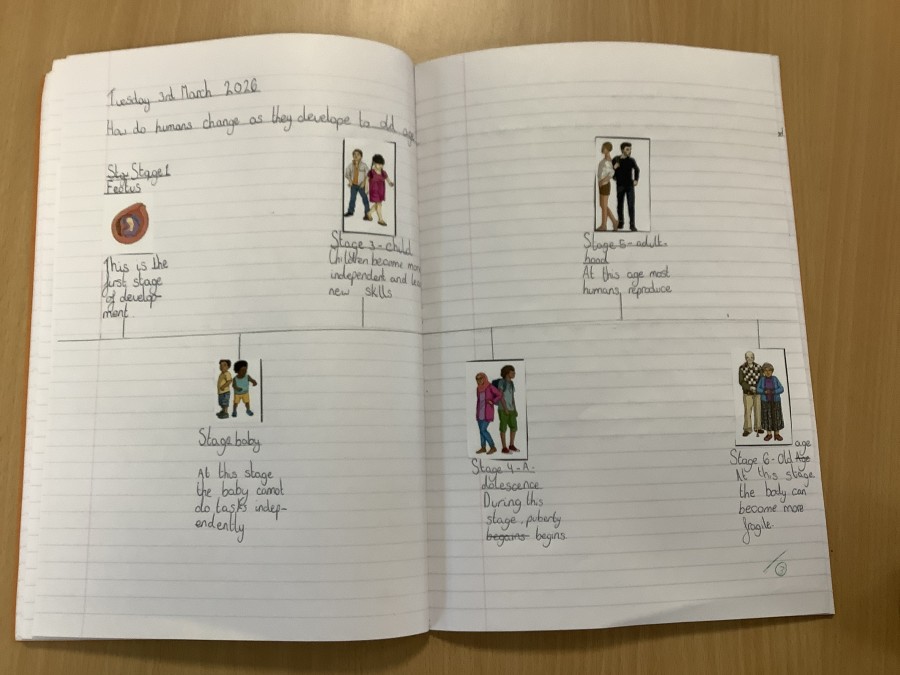 Tuesday 3rd March 2026
How do humans change as they develope to old age
Sta Stage 1
Feotus
This is the
first stage
of develop-
ment
Stage 3 - child
Children become more
independent and
new skills
Stage 5 - adult-
hood
At this age most
humans, reproduce
Stage baby
At this stage
the baby cannot
do tasks indep-
endently
Stage 4 - A-
dolescence
During this
stage, puberty
begains begins
Stage 6 - old Age age
At this stage
the body can
become more
fragile.
3